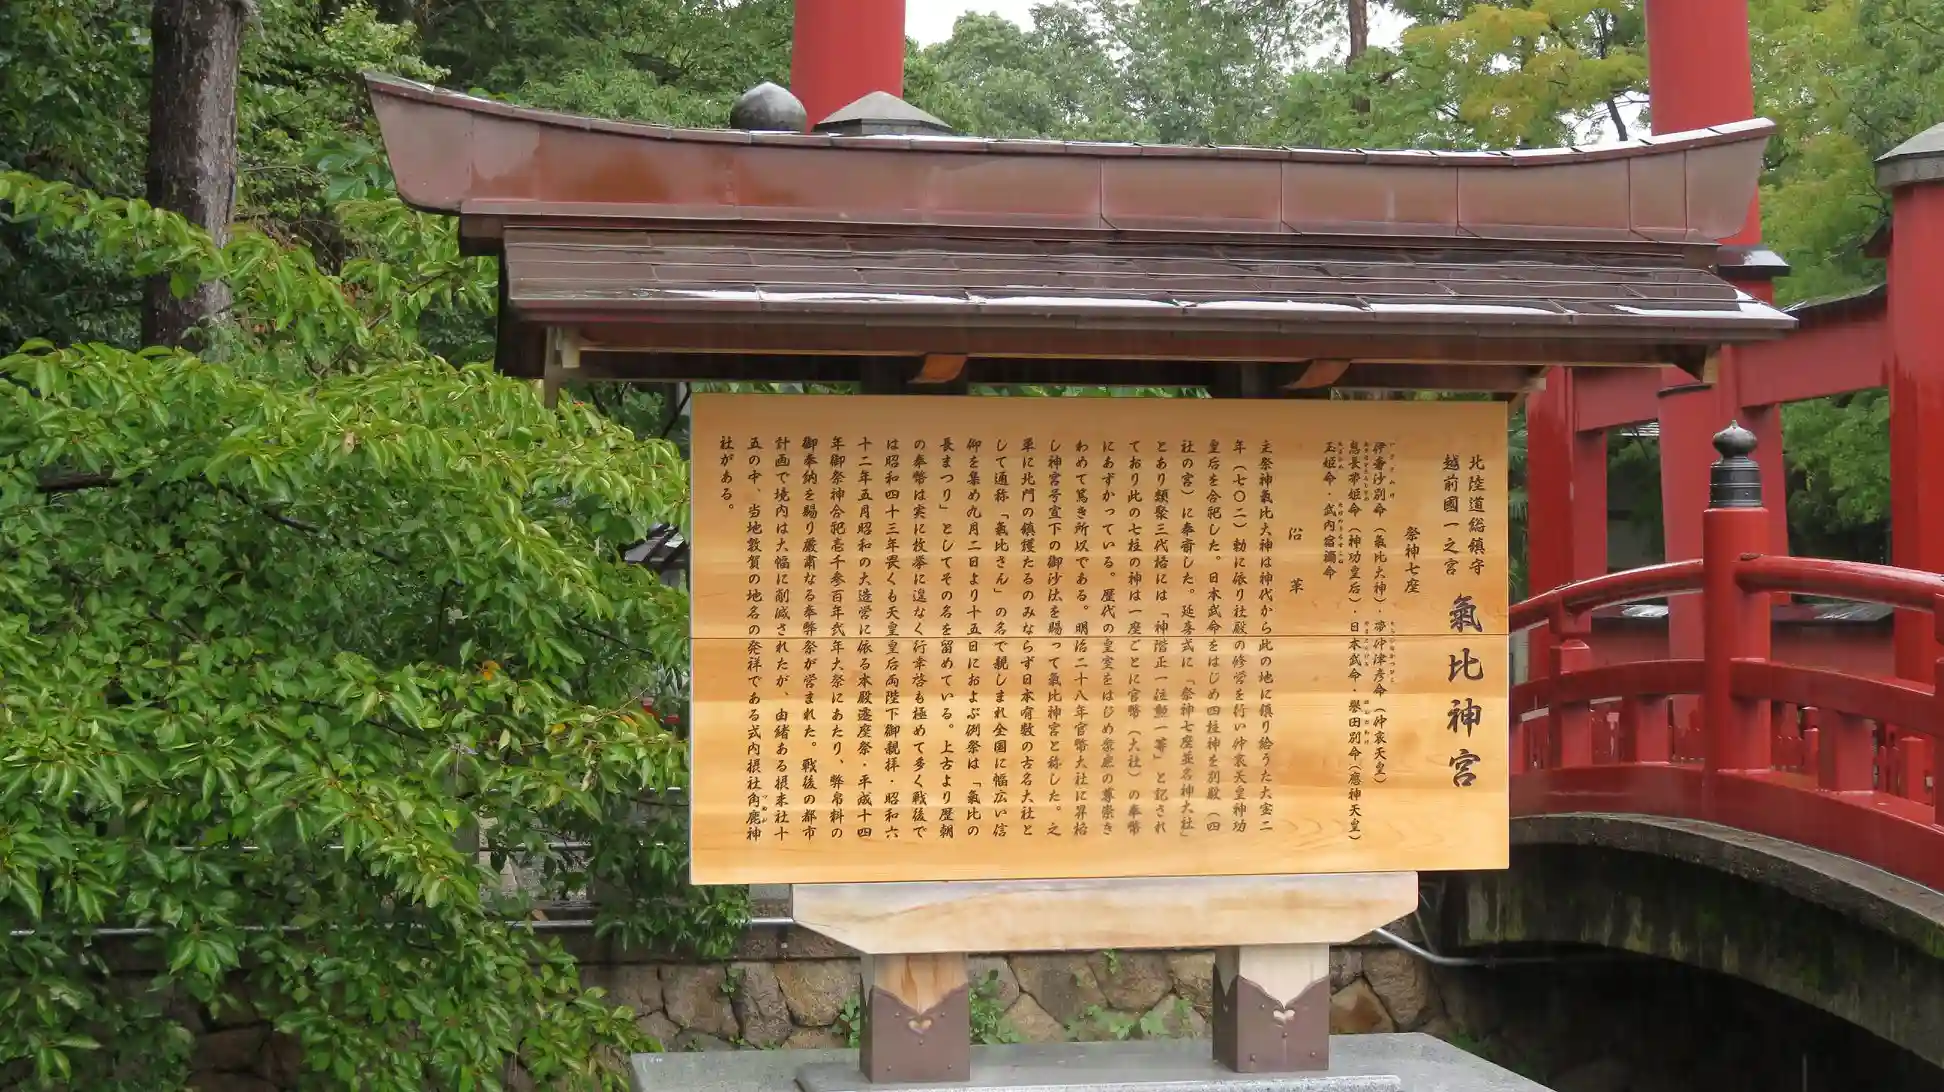 北陸道総鎮守
越前國一之宮
氣比神宮
祭神七座
伊奢沙別命（氣比大神）・帯仲津彦命（仲哀天皇）
息長帯姫命（神功皇后）・日本武命・譽田別命（應神天皇）
玉姫命・武内宿禰命
沿革
主祭神氣比大神は神代から此の地に鎮り給うた大宝二
年（七〇二）勅に依り社殿の修営を行い仲哀天皇神功
皇后を合祀した。日本武命をはじめ四柱神を別殿（四
社の宮）に奉斎した。延喜式に「祭神七座並名神大社」
とあり類聚三代格には「神階正一位勲一等」と記され
ており此の七柱の神は一座ごとに官幣（大社）の奉幣
にあずかっている。歴代の皇室をはじめ衆庶の尊崇き
わめて篤き所以である。明治二十八年官幣大社に昇格
し神宮号宣下の御沙汰を賜って氣比神宮と称した。之
單に北門の鎮護たるのみならず日本有数の古名大社と
して通称「氣比さん」の名で親しまれ全国に幅広い信
仰を集め九月二日より十五日におよぶ例祭は「氣比の
長まつり」としてその名を留めている。上古より歴朝
の奉幣は実に枚挙に遑なく行幸啓も極めて多く戦後で
は昭和四十三年畏くも天皇皇后両陛下御親拝・昭和六
十二年五月昭和の大造営に依る本殿遷座祭・平成十四
年御祭神合祀壱千参百年式年大祭にあたり、幣帛料の
御奉納を賜り厳肅なる奉幣祭が営まれた。戦後の都市
計画で境内は大幅に削減されたが、由緒ある摂末社十
五の中、当地敦賀の地名の発祥である式内摂社角鹿神
社がある。